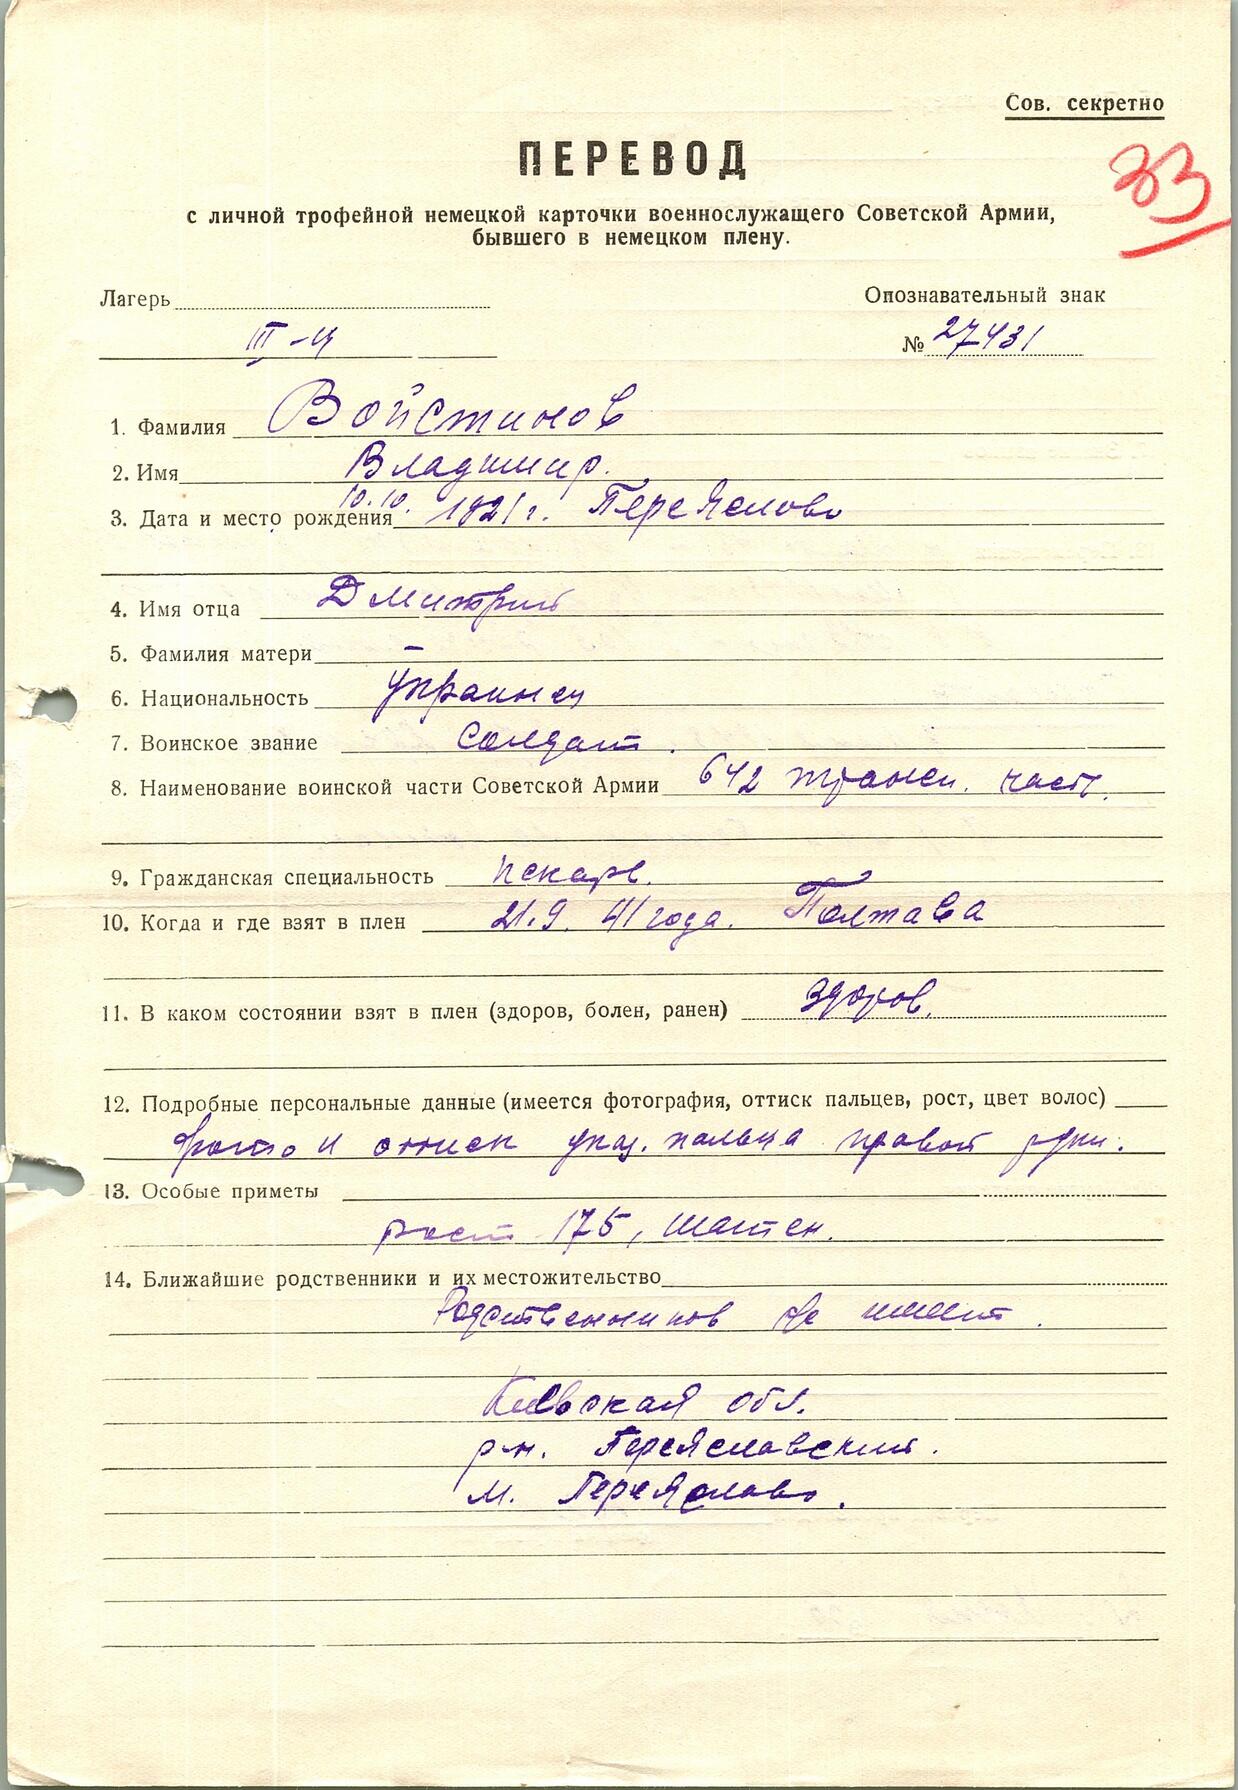 Сов. секретно
33
ПЕРЕВОД
с личной трофейной немецкой карточки военнослужащего Советской Армии,
бывшего в немецком плену.
Лагерь
Опознавательный знак
III-Ц
№ 27431
1. Фамилия Войстинов
2. Имя Владимир.
3. Дата и место рождения 10.10. 1921 г. Переяслово
4. Имя отца Дмитрий
5. Фамилия матери –
6. Национальность Украинец
7. Воинское звание Солдат.
8. Наименование воинской части Советской Армии 642 трансп. часть.
9. Гражданская специальность пекарь.
10. Когда и где взят в плен 21.9. 41 года. Полтава
11. В каком состоянии взят в плен (здоров, болен, ранен) Здоров.
12. Подробные персональные данные (имеется фотография, оттиск пальцев, рост, цвет волос)
Фото и оттиск указ. пальца правой руки.
13. Особые приметы
рост 175, шатен.
14. Ближайшие родственники и их местожительство
Родственников не имеет.
Киевская обл.
р-н. Переяславский.
м. Переяслово.